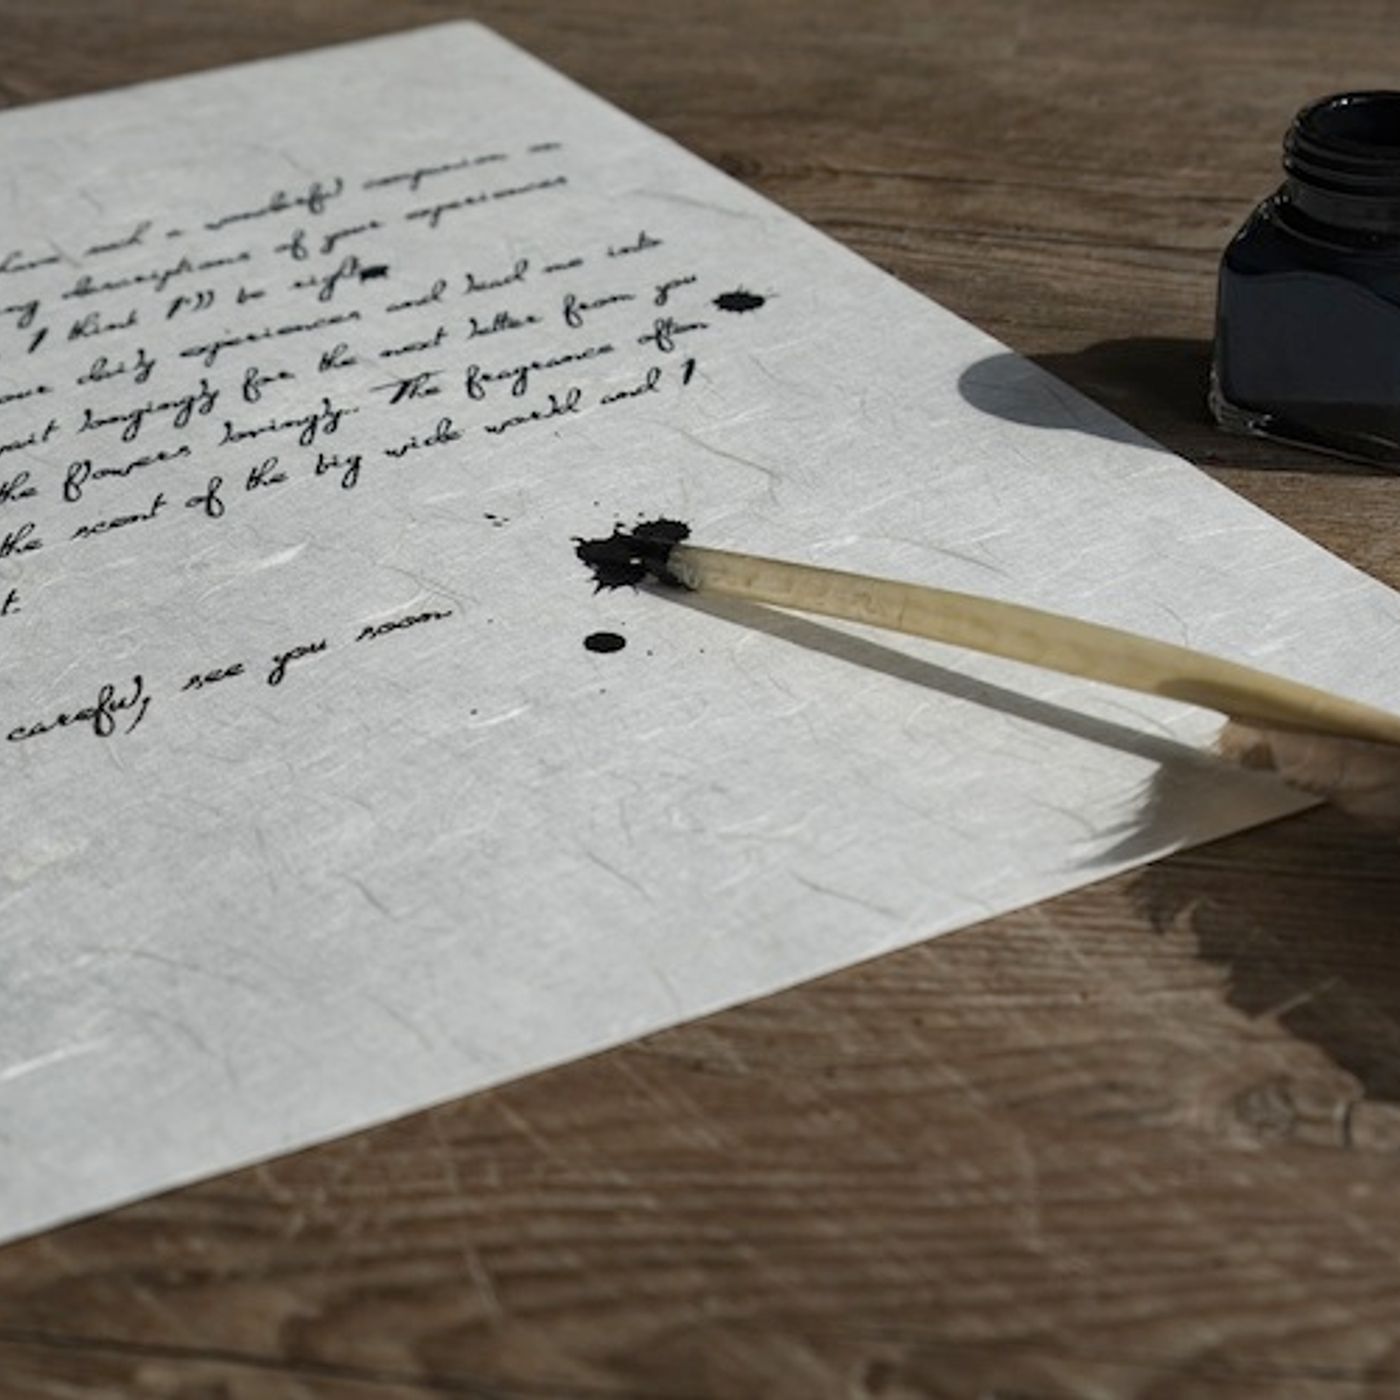 have such a wonderful companion in
ng descriptions of your experiences
I think I'll be right
our daily experiences and lead me into
wait longingly for the next letter from you
the flowers lovingly. The fragrance often
the scent of the big wide world and I
t.
careful, see you soon